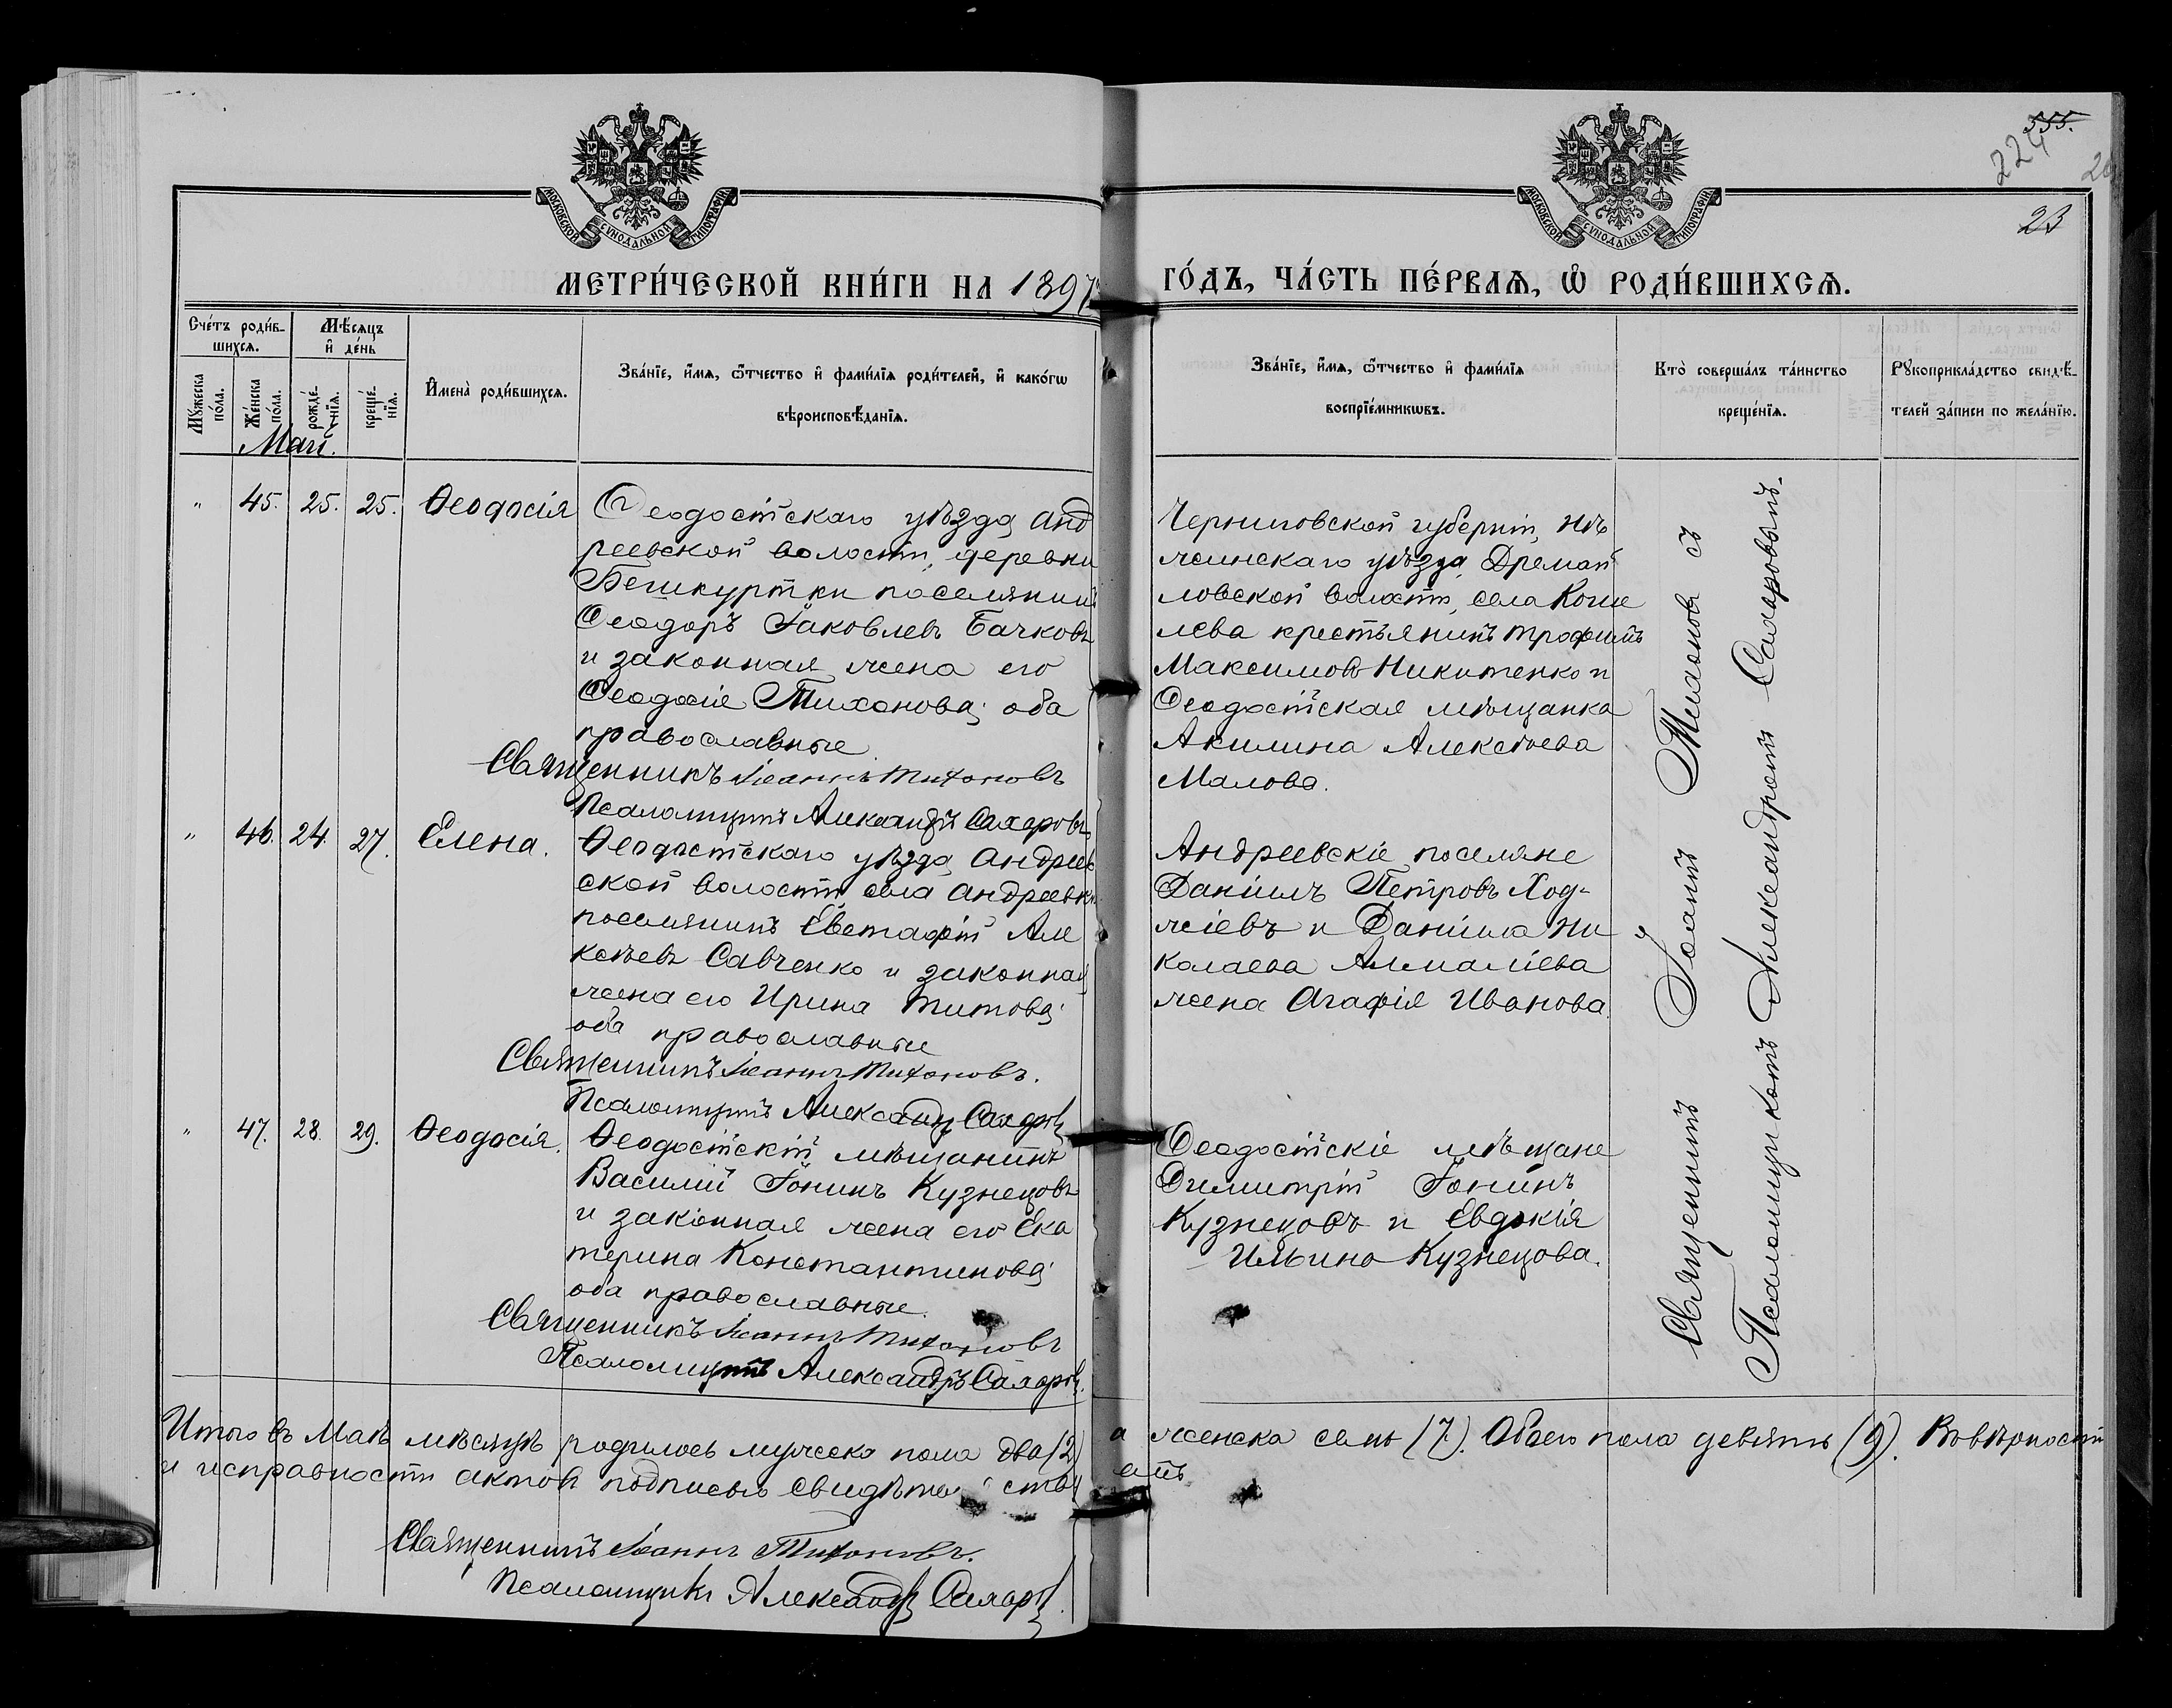 МОСКОВСКОЙ СѴНОДАЛЬНОЙ ТИПОГРАФІИ
МОСКОВСКОЙ СѴНОДАЛЬНОЙ ТИПОГРАФІИ
555.
224
23
МЕТРИ́ЧЕСКОЙ КНИ́ГИ НА 1897 ГО́ДЪ, ЧА́СТЬ ПЕ́РВАѦ, Ѽ РОДИ́ВШИХСѦ.
Сче́тъ роди́в-
шихсѧ.
Мѣ́сѧцъ
и҆ де́нь
Мꙋ́жеска
по́ла.
Же́нска
по́ла.
рожде́-
нїѧ.
креще́-
нїѧ.
И҆мена̀ роди́вшихсѧ.
Зва́нїе, и҆́мѧ, ѻ҆́тчество и҆ фами́лїѧ роди́телей, и҆ како́гѡ
вѣроисповѣ́данїѧ.
Зва́нїе, и҆́мѧ, ѻ҆́тчество и҆ фами́лїѧ
воспрїе́мникѡвъ.
Кто̀ соверша́лъ та́инство
креще́нїѧ.
Рꙋкоприкла́дство свидѣ́-
телей за́писи по жела́нїю.
Май.
" 45. 25. 25. Ѳеодосія
Ѳеодосійскаго уѣзда Анд
реевской волости, деревни
Бешкуртки поселянинъ
Ѳеодоръ Іаковлевъ Бачковъ
и законная жена его
Ѳеодосія Тихонова; оба
православные
Священникъ Іоаннъ Тихоновъ
Псаломщикъ Александръ Сахаровъ
Черниговской губерніи, Нѣ
жинскаго уѣзда, Дремай
ловской волости, села Коше
лева крестьянинъ Трофимъ
Максимовъ Никитенко и
Ѳеодосійская мѣщанка
Акилина Алексѣева
Малова.
" 46. 24. 27. Елена.
Ѳеодосійскаго уѣзда Андреев
ской волости, села Андреевки
поселянинъ Евстафій Але
ксѣевъ Савченко и законная
жена его Ирина Титова;
оба православные
Священникъ Іоаннъ Тихоновъ.
Псаломщикъ Александръ Сахаровъ
Андреевскіе поселяне
Даніилъ Петровъ Ход-
жіевъ и Даніила Ни
колаева Алмаліева
жена Агафія Иванова.
" 47. 28. 29. Ѳеодосія.
Ѳеодосійскій мѣщанинъ
Василій Іонинъ Кузнецовъ
и законная жена его Ека
терина Константинова;
оба православные.
Священникъ Іоаннъ Тихоновъ
Псаломщикъ Александръ Сахаровъ.
Ѳеодосійскіе мѣщане
Димитрій Іонинъ
Кузнецовъ и Евдокія
Ильина Кузнецова.
Священникъ Іоаннъ Тихоновъ съ
Псаломщикомъ Александромъ Сахаровымъ.
Итого въ Маѣ мѣсяцѣ родилось мужеска пола два (2) а женска семь (7). Обоего пола девять (9). Въ вѣрности
и исправности актовъ подписью свидѣтельствуемъ
Священникъ Іоаннъ Тихоновъ.
Псаломщикъ Александръ Сахаровъ.